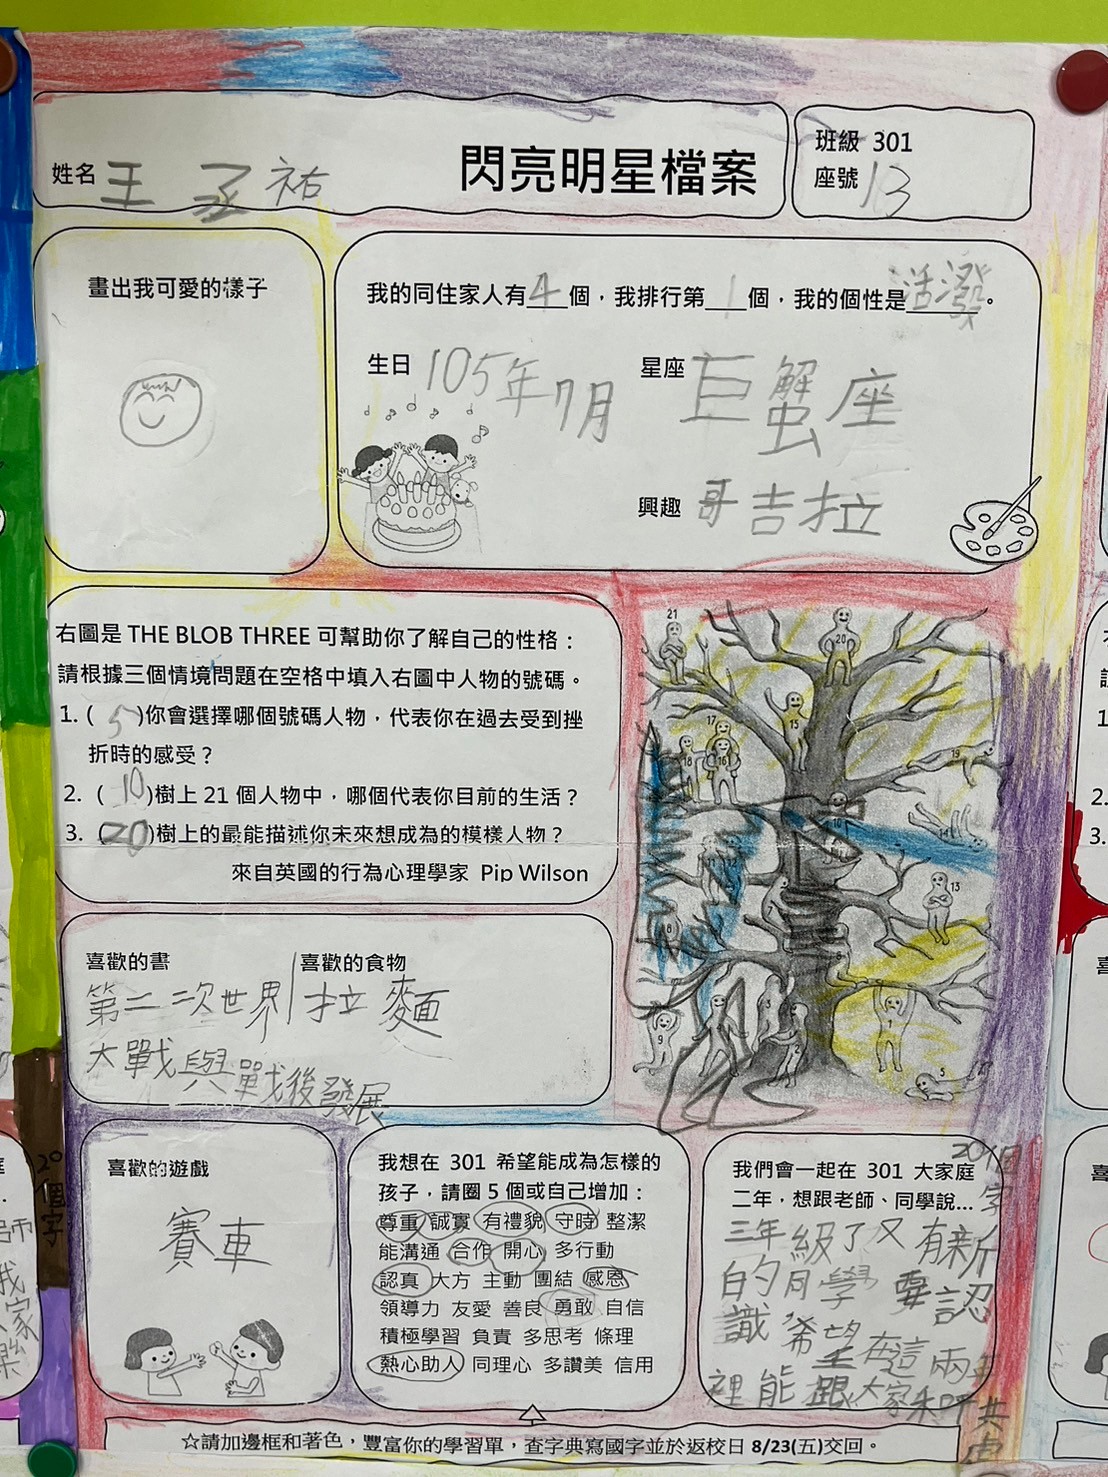 姓名 王丞祐 閃亮明星檔案
班級 301
座號 13
畫出我可愛的樣子
我的同住家人有 4 個，我排行第 1 個，我的個性是 活潑 。
生日 105年7月 星座 巨蟹座
興趣 哥吉拉
右圖是 THE BLOB THREE 可幫助你了解自己的性格：
請根據三個情境問題在空格中填入右圖中人物的號碼。
1. ( 5 )你會選擇哪個號碼人物，代表你在過去受到挫
折時的感受？
2. ( 10 )樹上 21 個人物中，哪個代表你目前的生活？
3. ( 20 )樹上的最能描述你未來想成為的模樣人物？
來自英國的行為心理學家 Pip Wilson
21
20
15
17
18 16
19
14
10
13
9
1
5
喜歡的書 喜歡的食物
第二次世界 拉麵
大戰與戰後發展
喜歡的遊戲
賽車
我想在 301 希望能成為怎樣的
孩子，請圈 5 個或自己增加：
尊重 誠實 有禮貌 守時 整潔
能溝通 合作 開心 多行動
認真 大方 主動 團結 感恩
領導力 友愛 善良 勇敢 自信
積極學習 負責 多思考 條理
熱心助人 同理心 多讚美 信用
我們會一起在 301 大家庭
二年，想跟老師、同學說...
20個字
三年級了又有新
的同學要認
識 希望在這兩年
裡能跟大家和呼共處
☆請加邊框和著色，豐富你的學習單，查字典寫國字並於返校日 8/23(五)交回。
20個字
師
我
家
樂
1
2.
3.
喜
喜